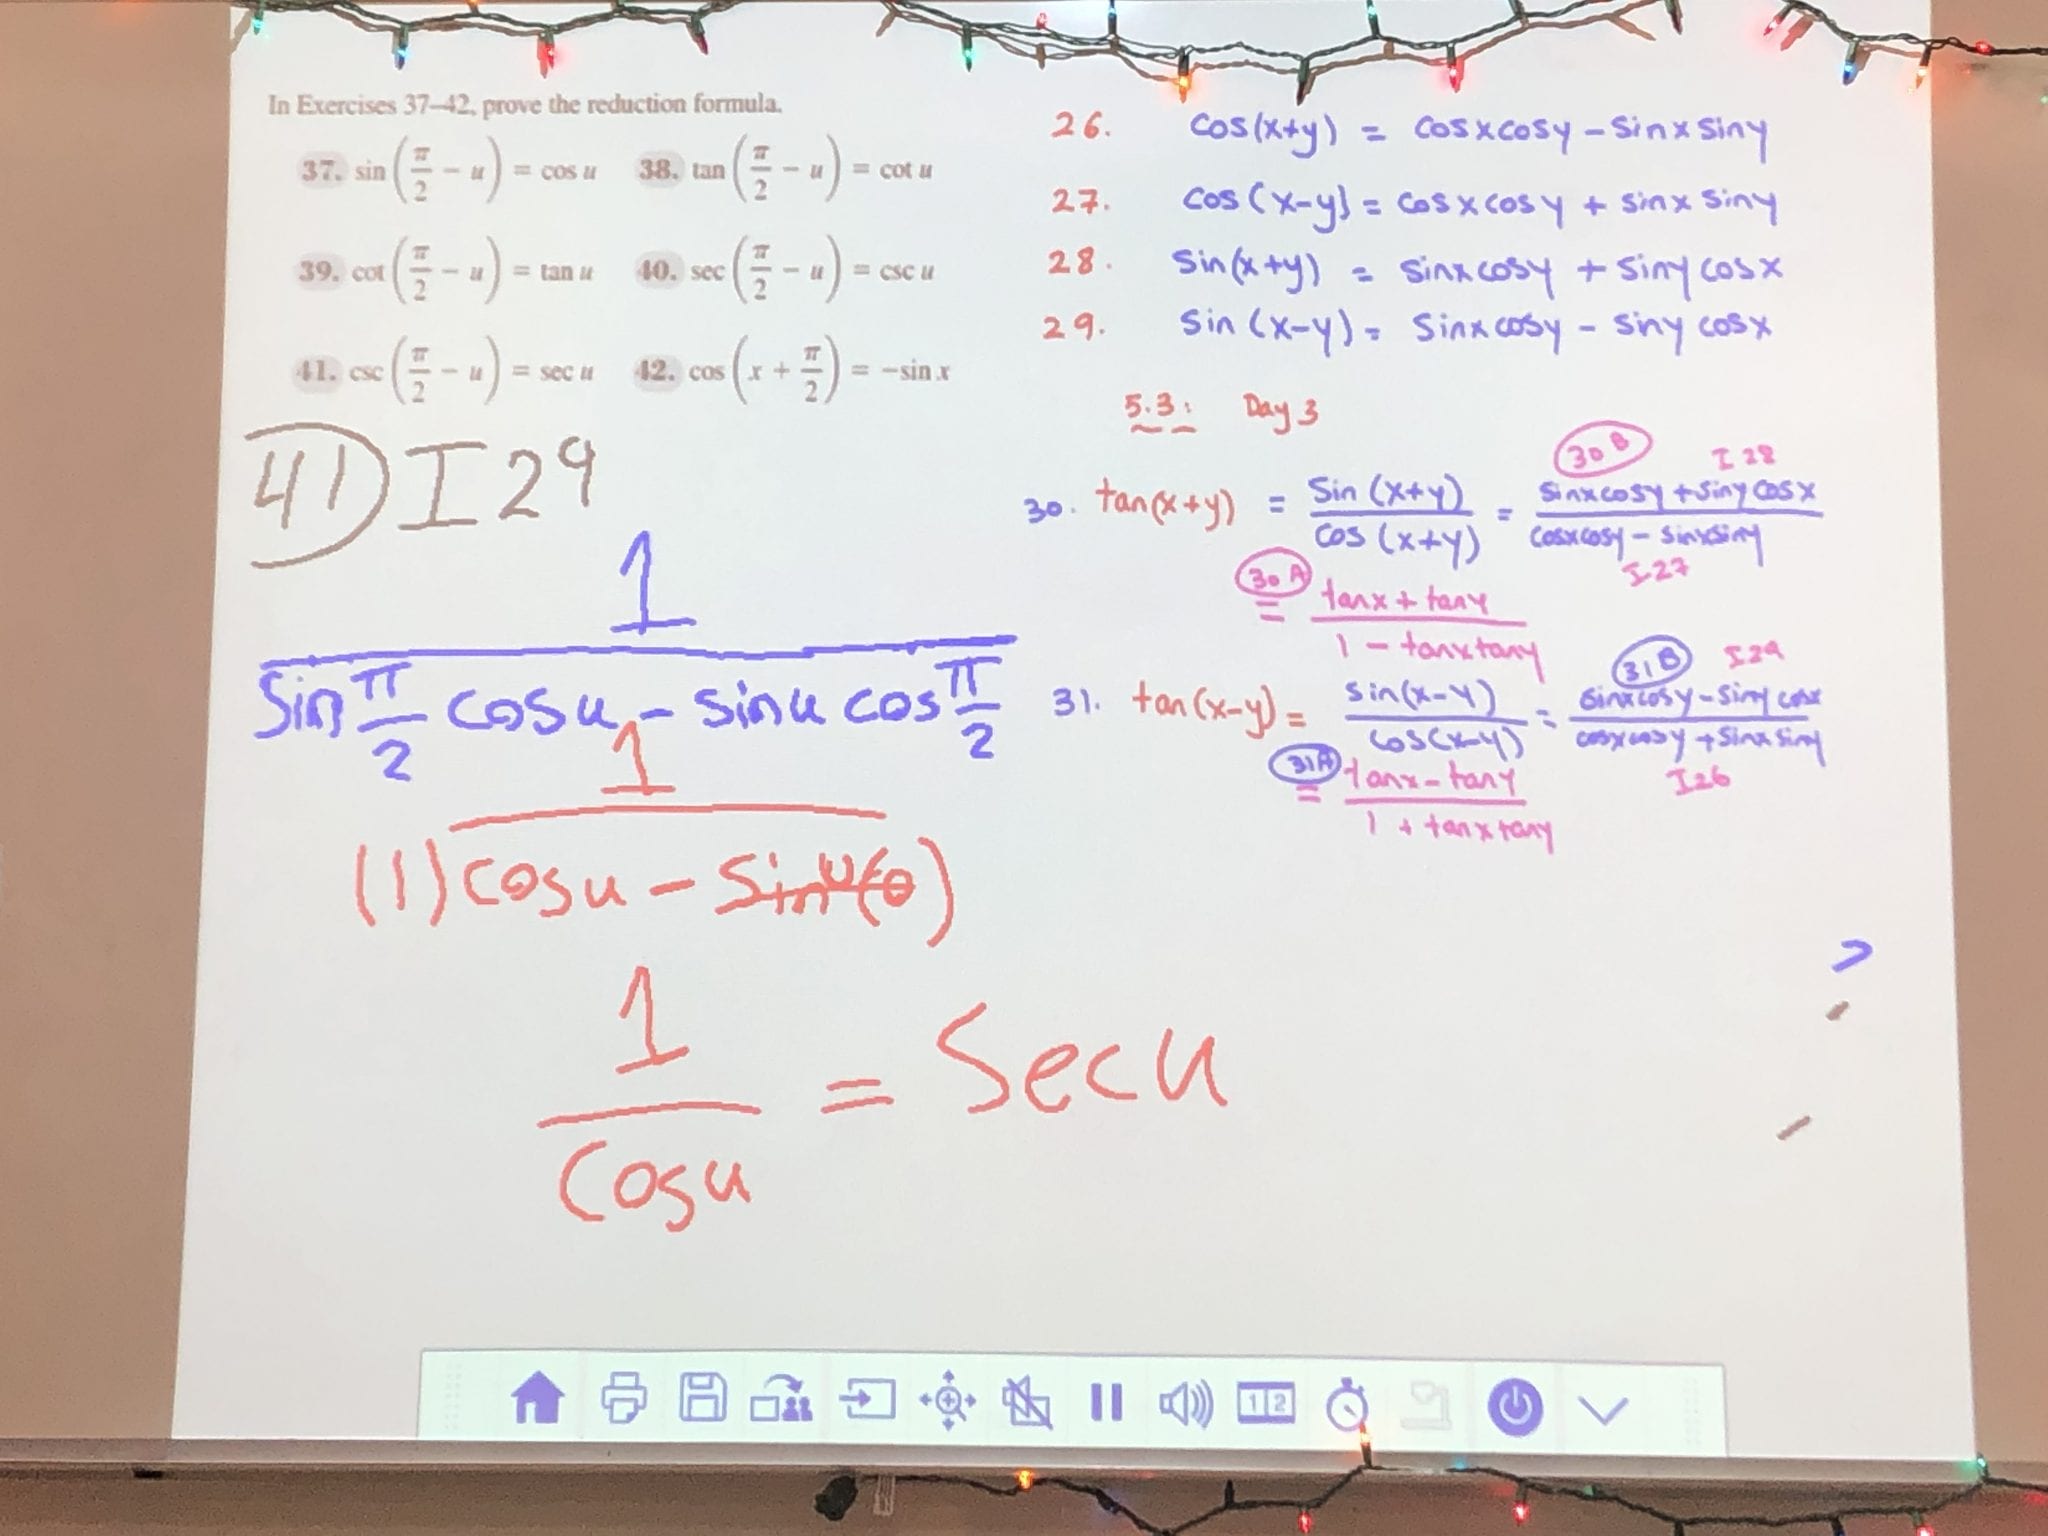 In Exercises 37–42, prove the reduction formula.
37. sin(π/2 − u) = cos u 38. tan(π/2 − u) = cot u
39. cot(π/2 − u) = tan u 40. sec(π/2 − u) = csc u
41. csc(π/2 − u) = sec u 42. cos(x + π/2) = −sin x
41) I 29
1
Sin π/2 cosu − sinu cos π/2
1
(1) cosu − sinu(0)
1
cosu
= Secu
26. cos(x+y) = cosxcosy − sinx siny
27. cos(x−y) = cosxcosy + sinx siny
28. sin(x+y) = sinxcosy + siny cosx
29. sin(x−y) = sinxcosy − siny cosx
5.3: Day 3
30B I 28
30. tan(x+y) = sin(x+y)/cos(x+y) = sinxcosy + sinycosx/cosxcosy − sinxsiny
I 27
30A = tanx + tany/1 − tanxtany
31B I29
31. tan(x−y) = sin(x−y)/cos(x−y) = sinxcosy − siny cosx/cosxcosy + sinx siny
I26
31A = tanx − tany/1 + tanxtany
1 2